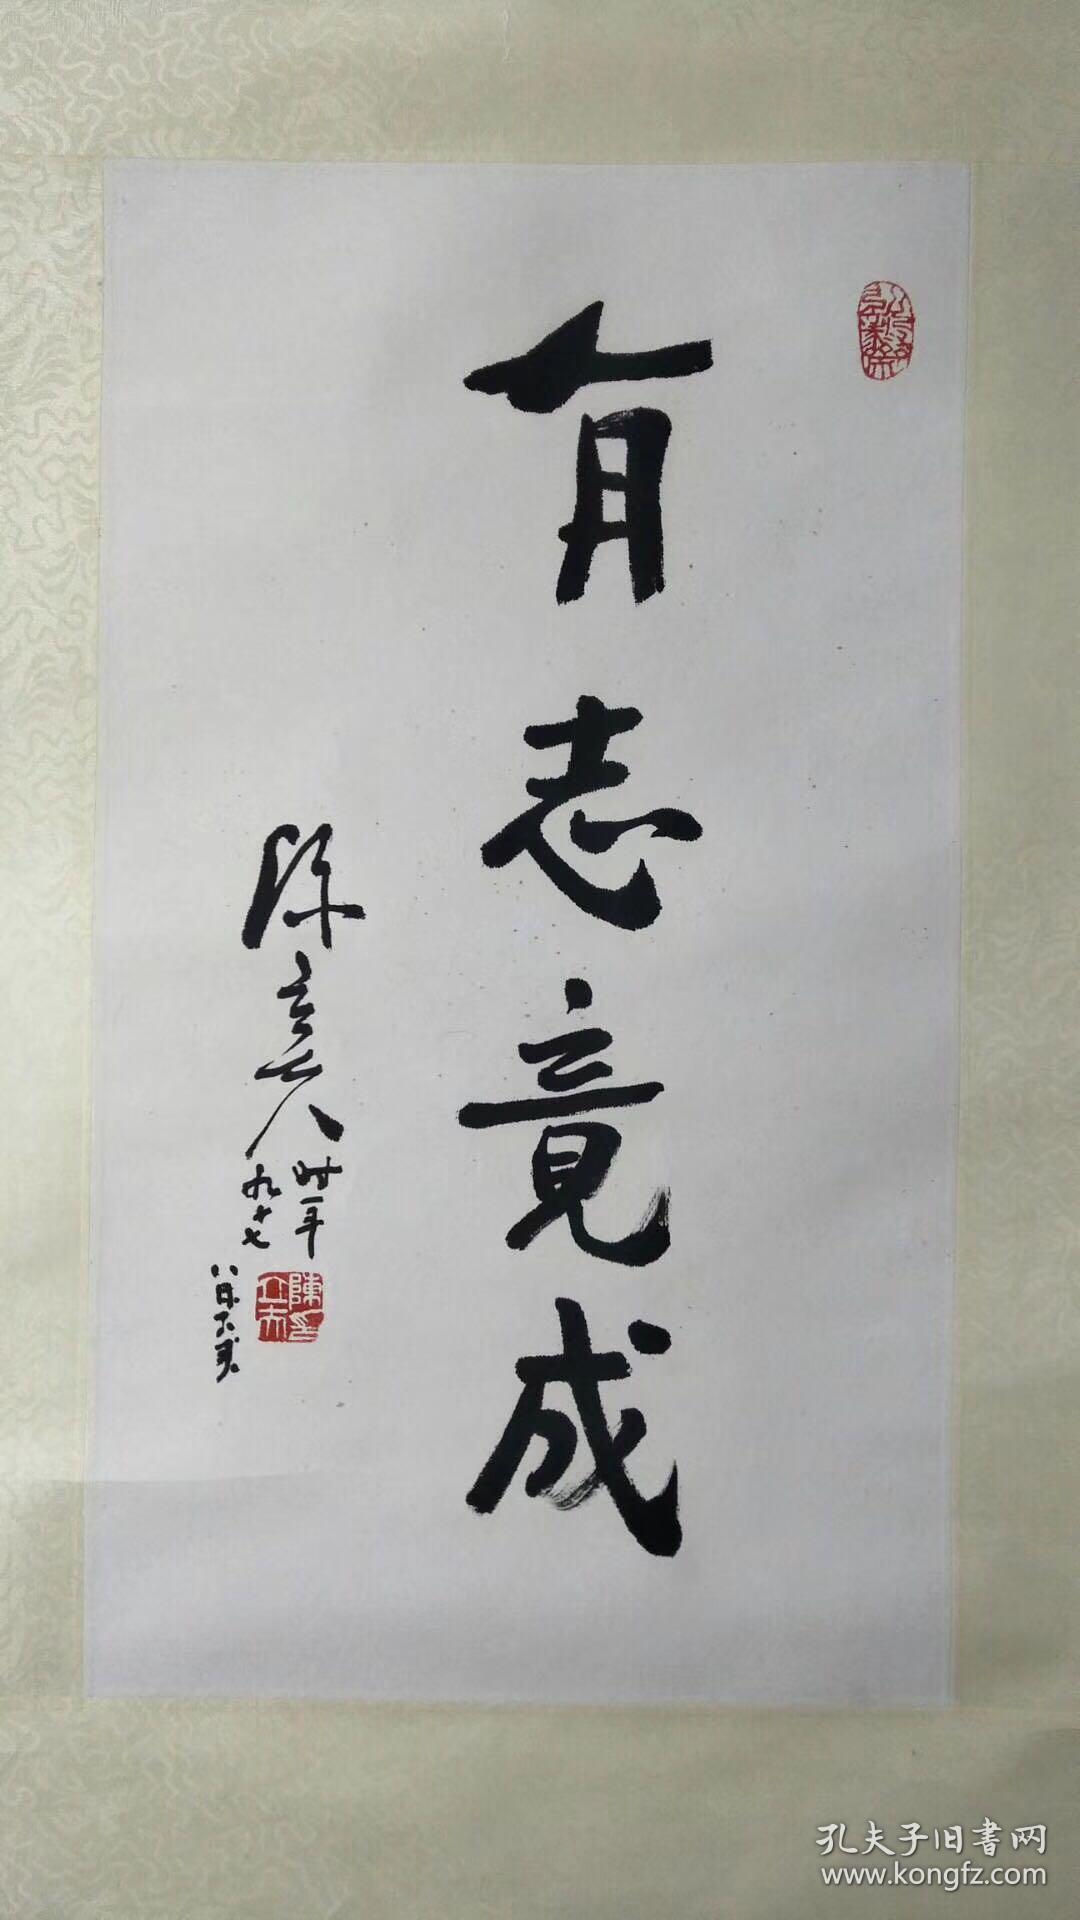 有志竟成
陈立夫
时年
九十七
陳立夫印
孔夫子旧書网
www.kongfz.com